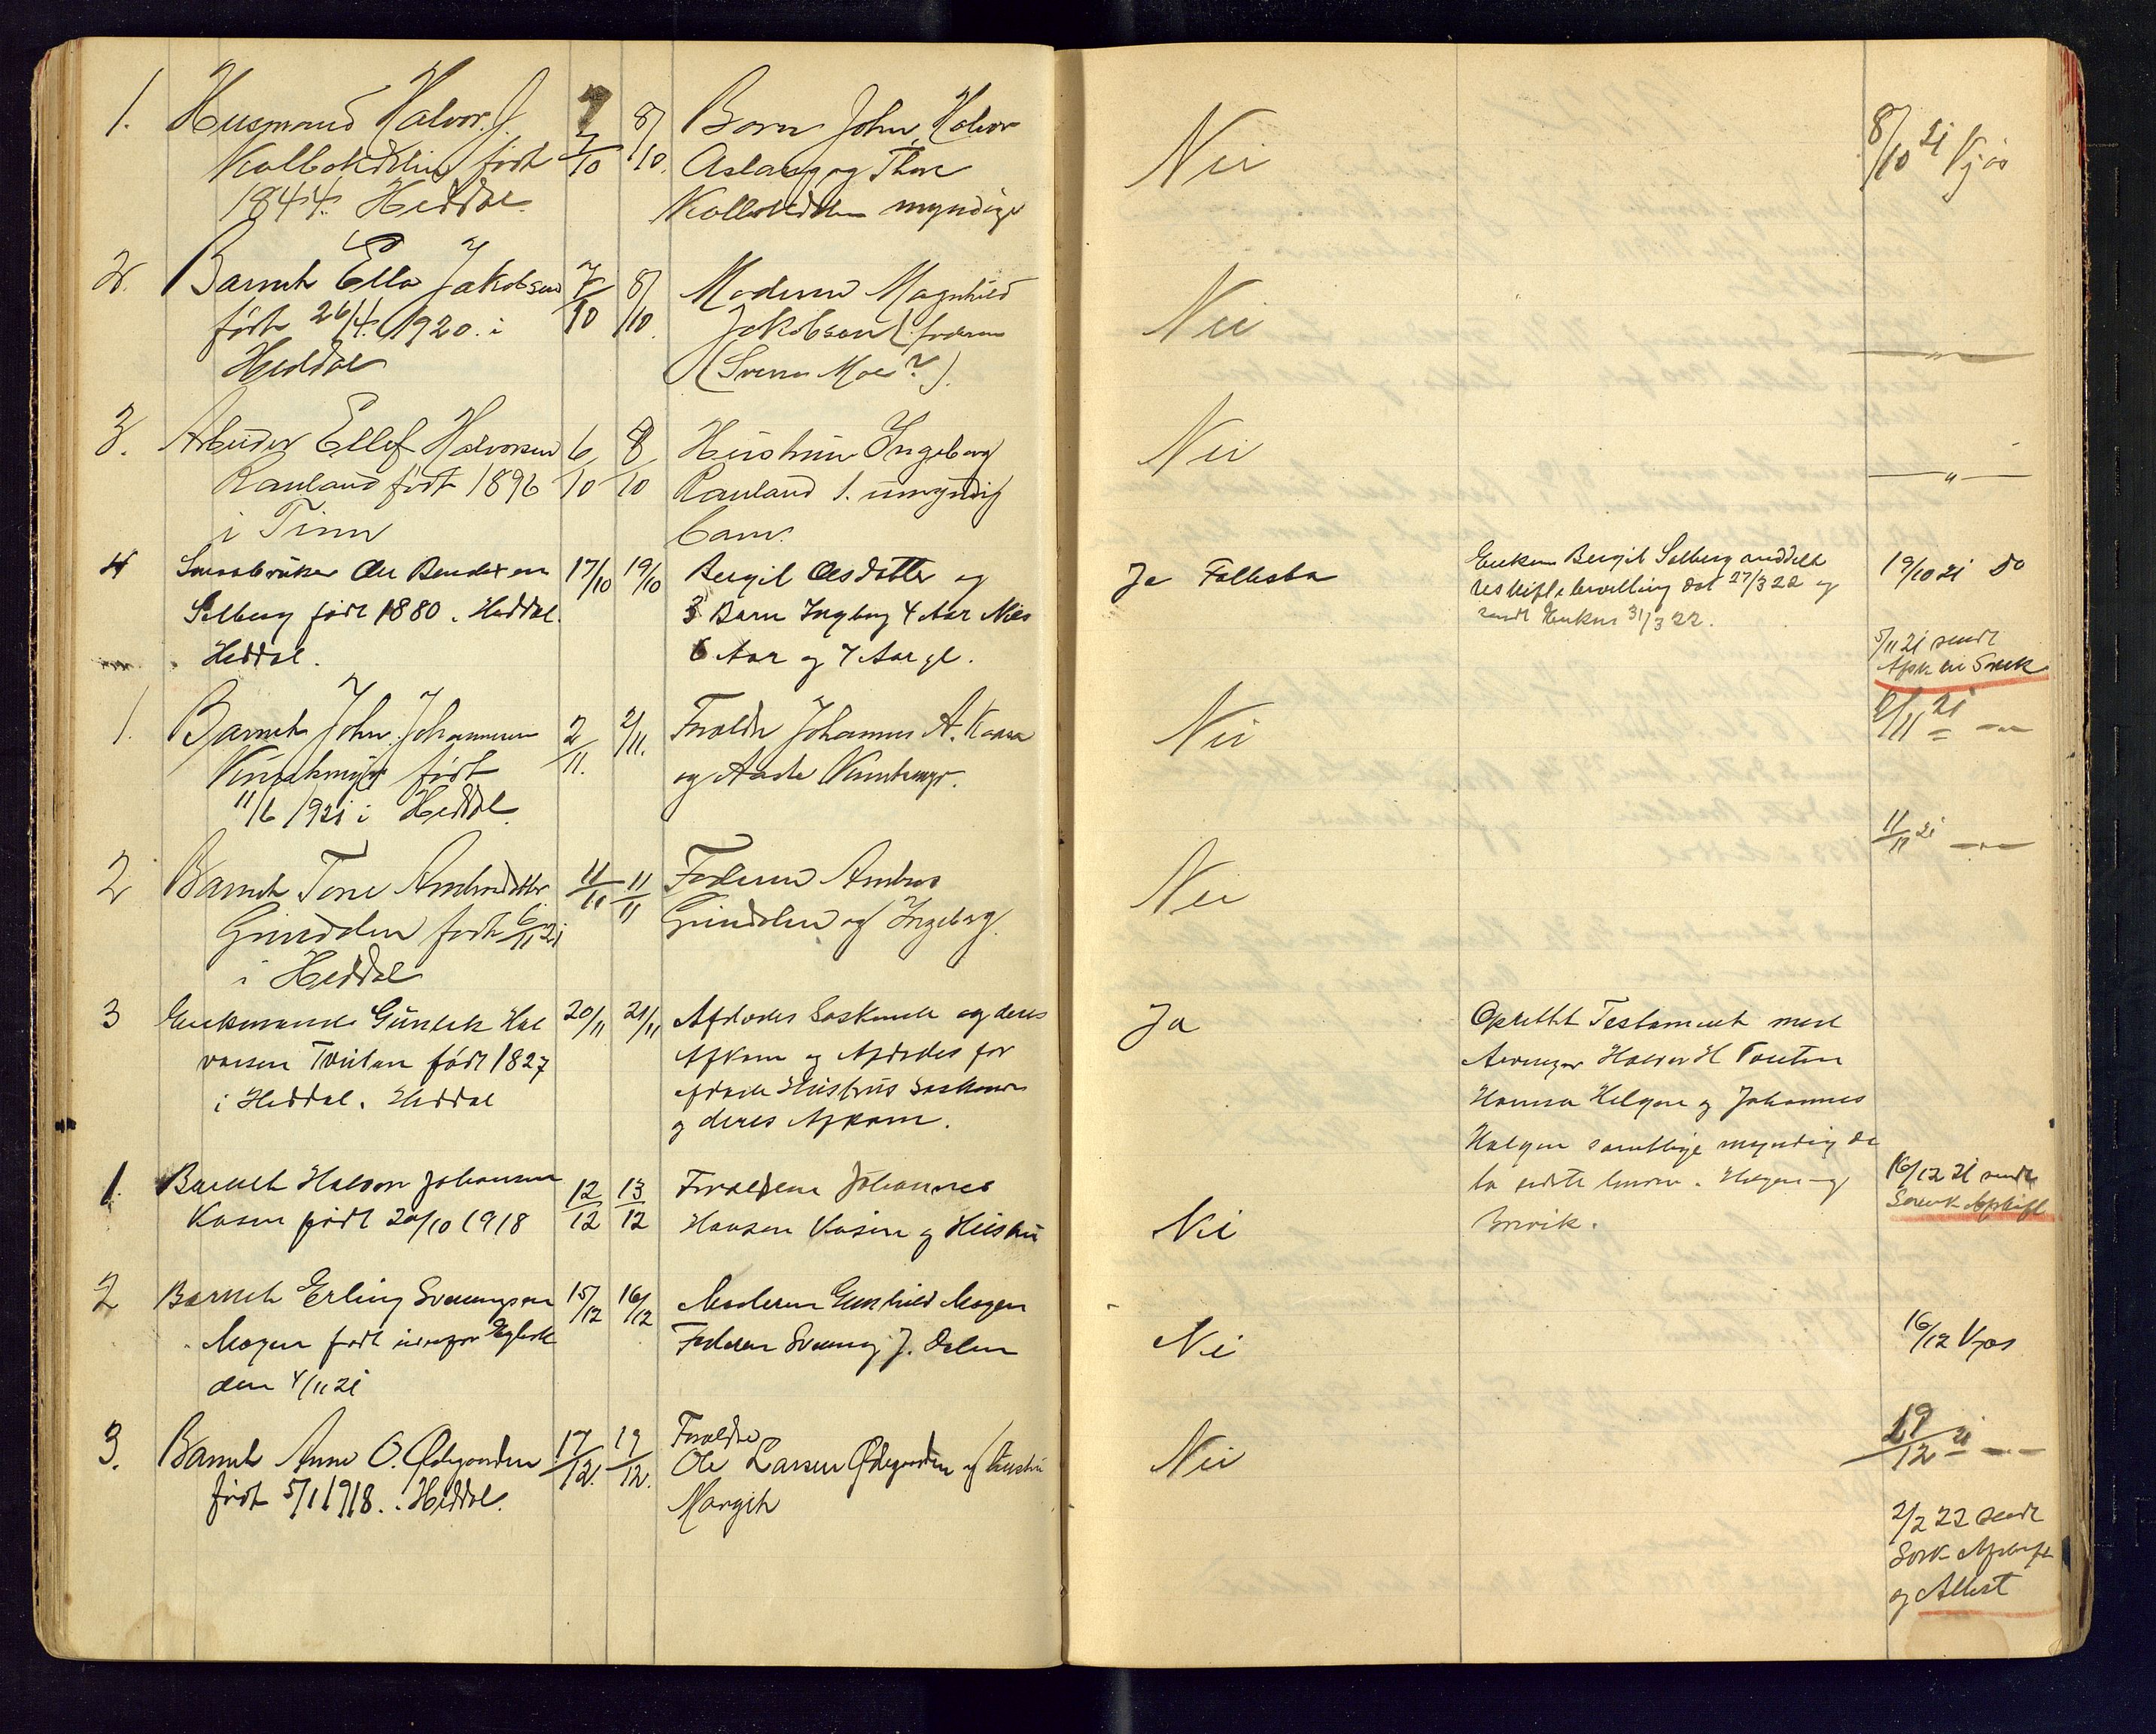 1. Husmand Halvor J. 7/10 8/10 Børn John, Halvor Nei 8/10 21 Kjos
Kolbotddalen født Aslaug og Thor
1844. Heddal myndige
2. Barnet Ella Jakobsen 7/10 8/10 Moderen Magnhild Nei — " —
født 26/4 1920. i Jakobsen (faderen
Heddal (Svenn Moe?).
3. Arbeider Ellef Halvorsen 6/10 8/10 Hustru Ingeborg Nei — " —
Rauland født 1896 Rauland 1. umyndig
i Tinn barn.
4 Ole Bendixen 17/10 19/10 Bergit Olsdatter og Ja Enken Bergit Solberg meddelt 19/10 21 do
Solberg født 1880. Heddal. 3 Barn Ingborg 4 Aar Nils uskiftebevilling dat 27/3 22 og
Heddal. 6 Aar og 7 Aar gl. sendt Enken 31/3 22. 5/11 21 sendt
1. Barnet John Johannesen 2/11. 2/11. Forældre Johannes A. Kaasa Nei 2/11 21 — " —
født og Aaste
11/6 1921 i Heddal.
2 Barnet Tone 11/11 11/11 Faderen Nei 11/11 21 — " —
Grindalen født 6/11 21 Grindalen og Ingeborg.
i Heddal
3 Enkemand Gunlek Hal 20/11 21/11 Afdødes Søskende og deres Ja Oprettet Testament med
vorsen født 1827 Afkom og Afdødes før Arvinger Halvor H
i Heddal. Heddal afdøde Hustrus Søskende Helgen og Johannes
og deres Afkom. Helgen samtlige myndig de
1. Barnet Halvor Johansen 12/12 13/12 Forældrene Johannes Nei to sidste 16/12 21 sendt
Kasin født 20/10 1918 Hansen Kasin og Hustru Sorenk Afskrift
2 Barnet Erling Sveinungsen 15/12 16/12 Moderen Gunhild Mogen Nei 16/12 Kjos
Mogen født Faderen Sveinung J. Dalen
den 4/11 21
3. Barnet Anne O. Ødegaarden 17/12. 19/12. Forældre Nei 19/12 21 — " —
født 5/1 1918. Heddal. Ole Larsen Ødegaarden og hustru
Margit
2/2 22 sendt
Sork Afskrift
og Attest